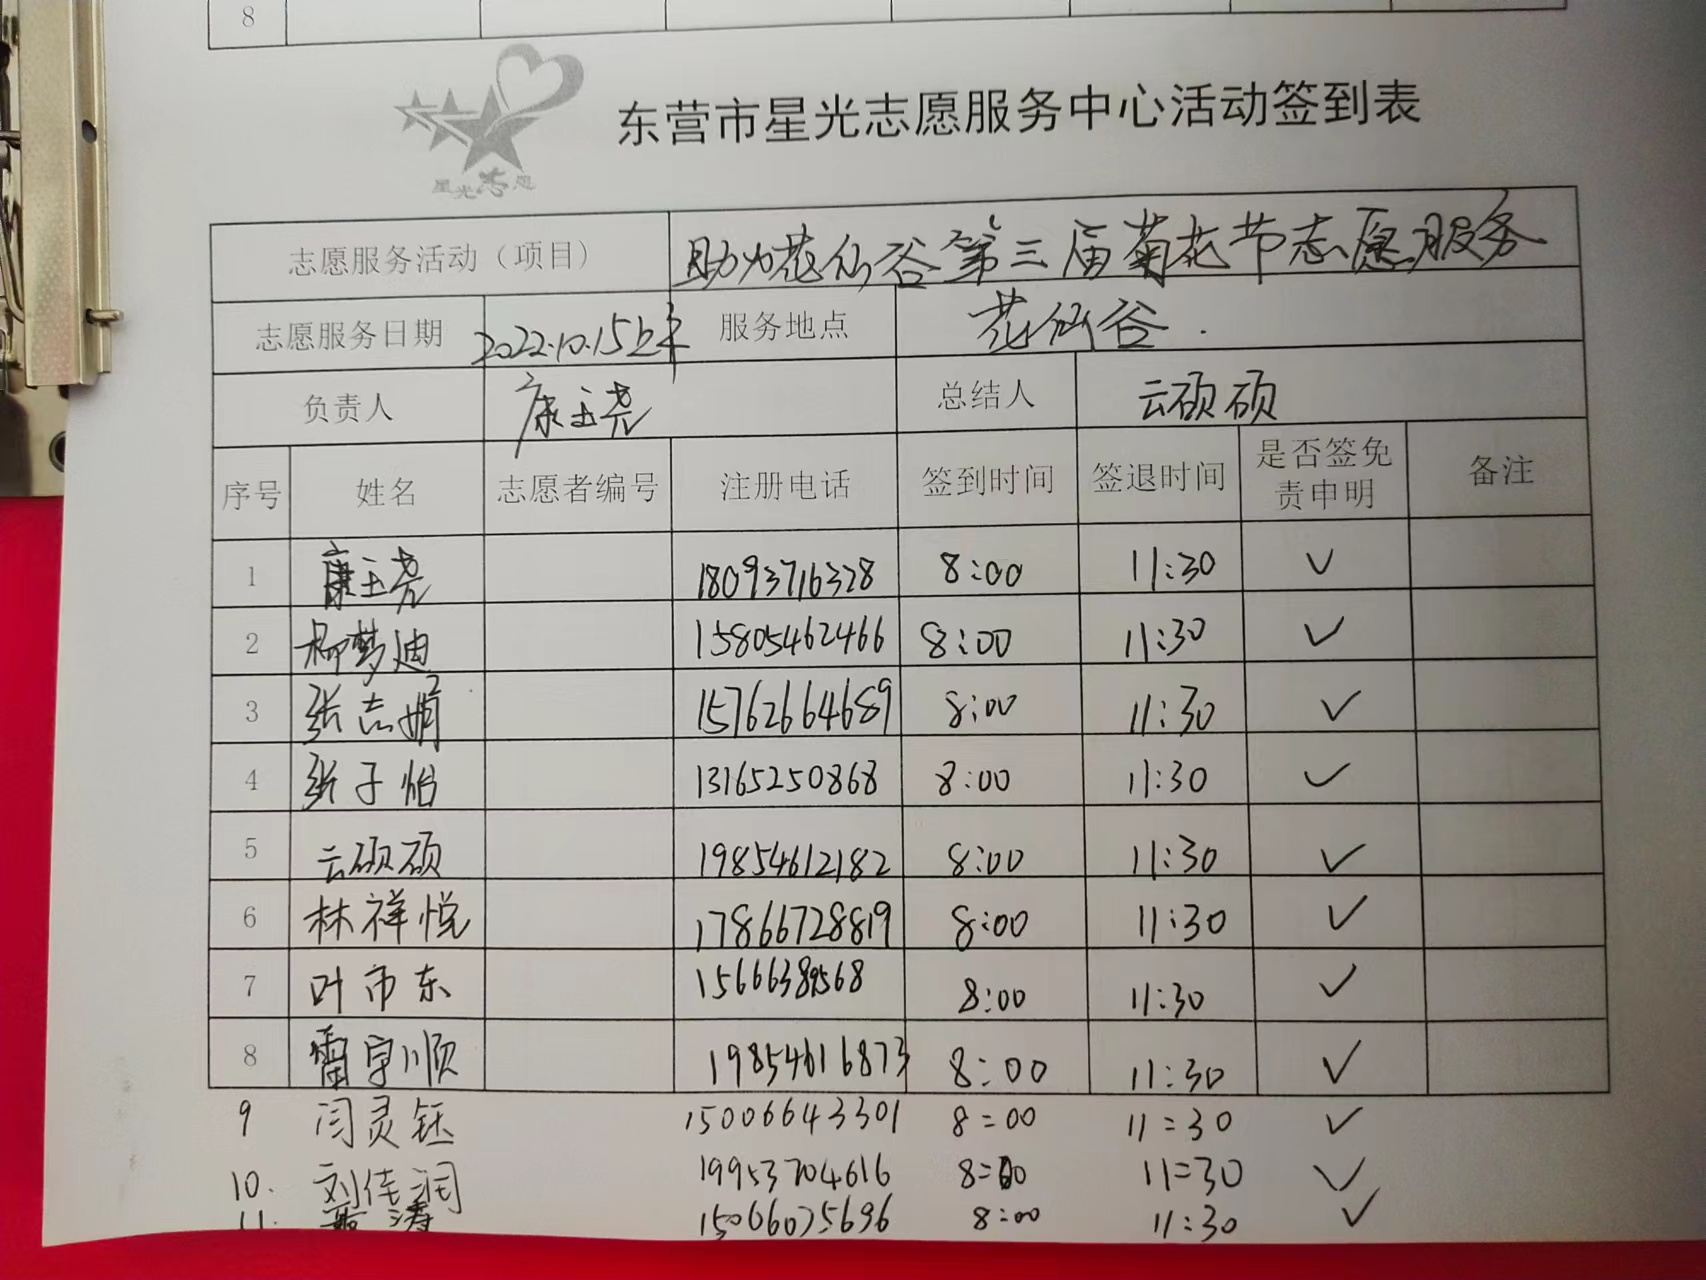 8
星光志愿
东营市星光志愿服务中心活动签到表
志愿服务活动（项目） 助力花仙谷第三届菊花节志愿服务
志愿服务日期 2022.10.15上午 服务地点 花仙谷.
负责人 康玉尧 总结人 云硕硕
序号 姓名 志愿者编号 注册电话 签到时间 签退时间 是否签免责申明 备注
1 康玉尧 18093716328 8:00 11:30 ✓
2 柳梦迪 15805462466 8:00 11:30 ✓
3 张志娟 15762664689 8:00 11:30 ✓
4 张子怡 13165250868 8:00 11:30 ✓
5 云硕硕 19854612182 8:00 11:30 ✓
6 林祥悦 17866728819 8:00 11:30 ✓
7 叶市东 8:00 11:30 ✓
8 雷宇顺 19854616873 8:00 11:30 ✓
9 闫灵钰 15006643301 8:00 11:30 ✓
10. 刘佳润 19953704616 8:00 11:30 ✓
11. 涛 15066075696 8:00 11:30 ✓